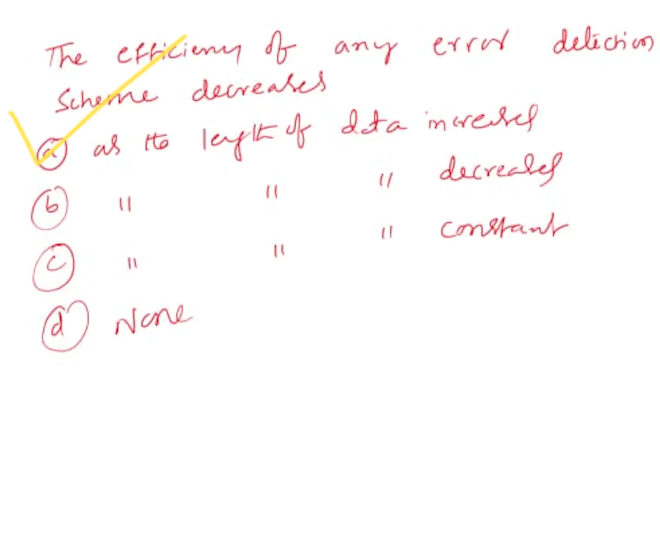 The efficiency of any error detection
Scheme decreases
(a) as the length of data increases
(b) " " " decreases
(c) " " " constant
(d) None